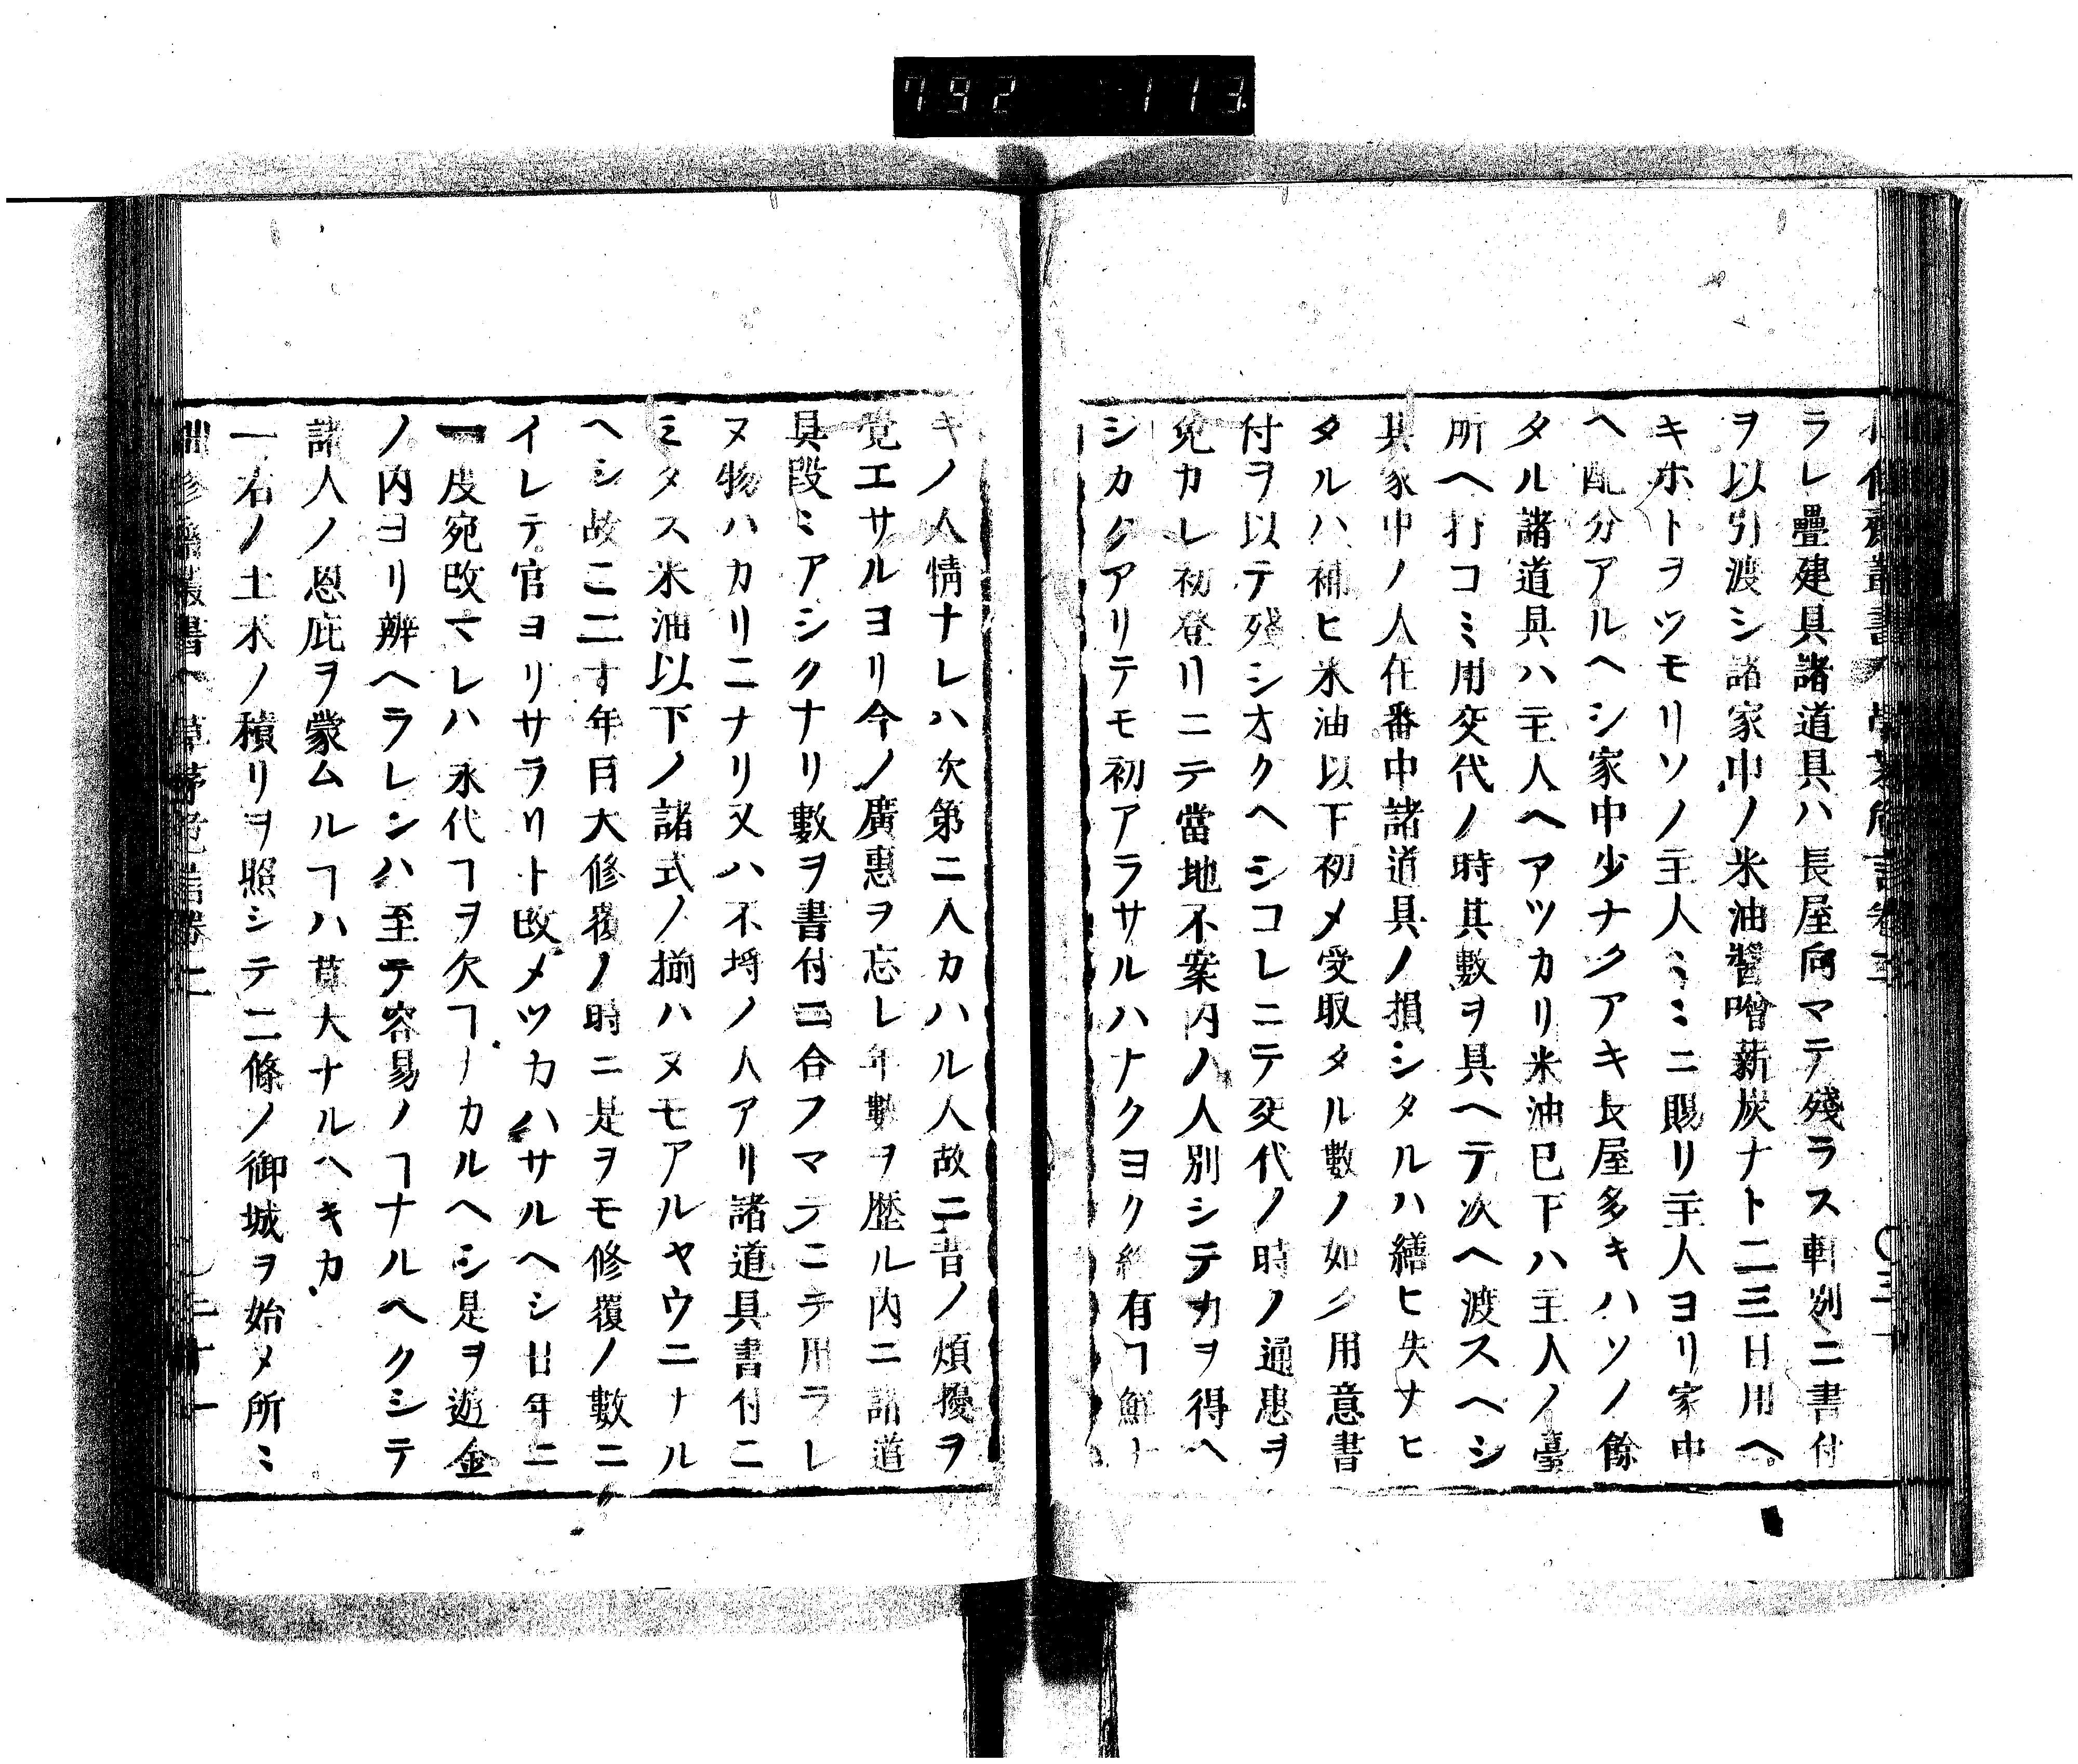 792 113
ラレ疊建具諸道具ハ長屋向マテ殘ラス軒別ニ書付
ヲ以引渡シ諸家中ノ米油醬噌薪炭ナト二三日用ヘ
キホトヲツモリソノ主人ミミニ賜リ主人ヨリ家中
ヘ配分アルヘシ家中少ナクアキ長屋多キハソノ餘
タル諸道具ハ主人ヘアツカリ米油已下ハ主人ノ臺
所ヘ打コミ用交代ノ時其數ヲ具ヘテ次ヘ渡スヘシ
其家中ノ人在番中諸道具ノ損シタルハ繕ヒ失ナヒ
タルハ補ヒ米油以下初メ受取タル數ノ如ク用意書
付ヲ以テ殘シオクヘシコレニテ交代ノ時ノ通患ヲ
免カレ初登リニテ當地不案内ノ人別シテカヲ得ヘ
シカクアリテモ初アラサルハナクヨク終有ヿ鮮ト
キノ人情ナレハ次第ニ入カハル人故ニ昔ノ煩擾ヲ
覚エサルヨリ今ノ廣惠ヲ忘レ年數ヲ歴ル内ニ諸道
具段ミアシクナリ數ヲ書付ニ合フマテニテ用ラレ
ヌ物ハカリニナリ又ハ不埒ノ人アリ諸道具書付ニ
ミタス米油以下ノ諸式ノ揃ハヌモアルヤウニナル
ヘシ故ニ二十年目大修覆ノ時ニ是ヲモ修覆ノ數ニ
イレテ官ヨリサラリト改メツカハサルヘシ廿年ニ
一度宛改マレハ永代ヿヲ欠ヿナカルヘシ是ヲ遊金
ノ内ヨリ辨ヘラレンハ至テ容易ノヿナルヘクシテ
諸人ノ恩庇ヲ蒙ムルヿハ莫大ナルヘキカ
一右ノ土木ノ積リヲ照シテ二條ノ御城ヲ始メ所ミ